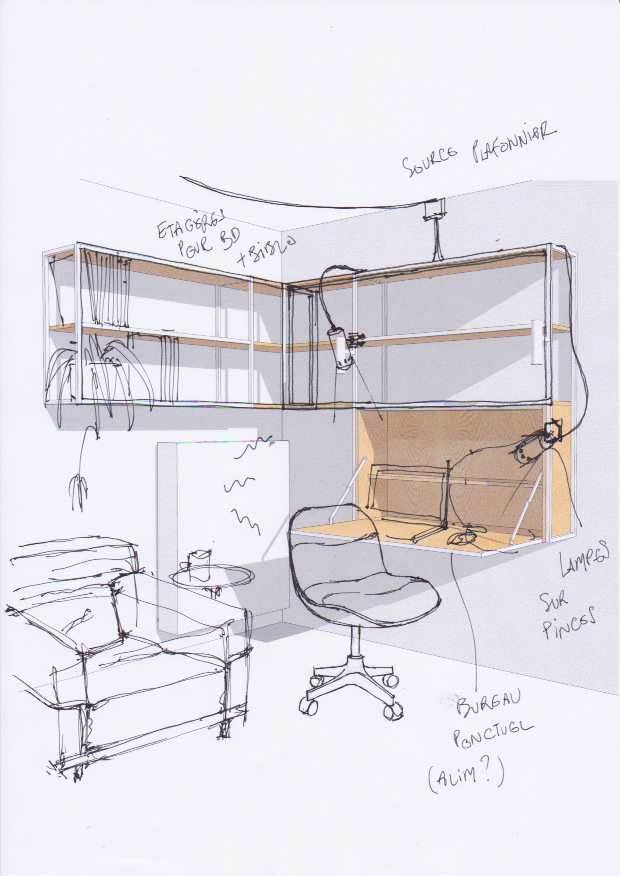 SOURCE PLAFONNIER
ETAGÈRES
POUR BD
+ BIBLO
LAMPES
SUR
PINCES
BUREAU
PONCTUEL
(ALIM?)